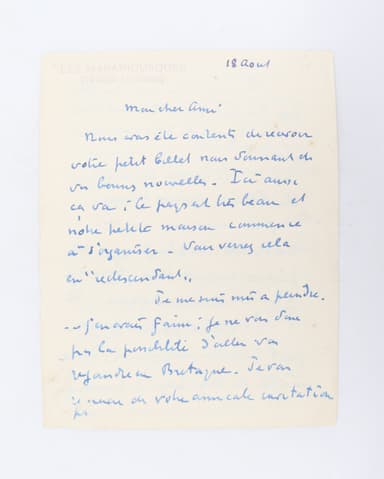 18 Aout
Mon cher Ami
Nous avons été contents de recevoir
votre petit billet nous donnant de
vos bonnes nouvelles - Ici aussi
ça va ; le pays est très beau et
notre petite maison commence
à s'organiser - Vous verrez cela
en "redescendant".
Je me suis mis à peindre.
- j'en avais faim ; je ne vois donc
pas la possibilité d'aller vous
rejoindre en Bretagne. Je vous
remercie de votre amicale invitation